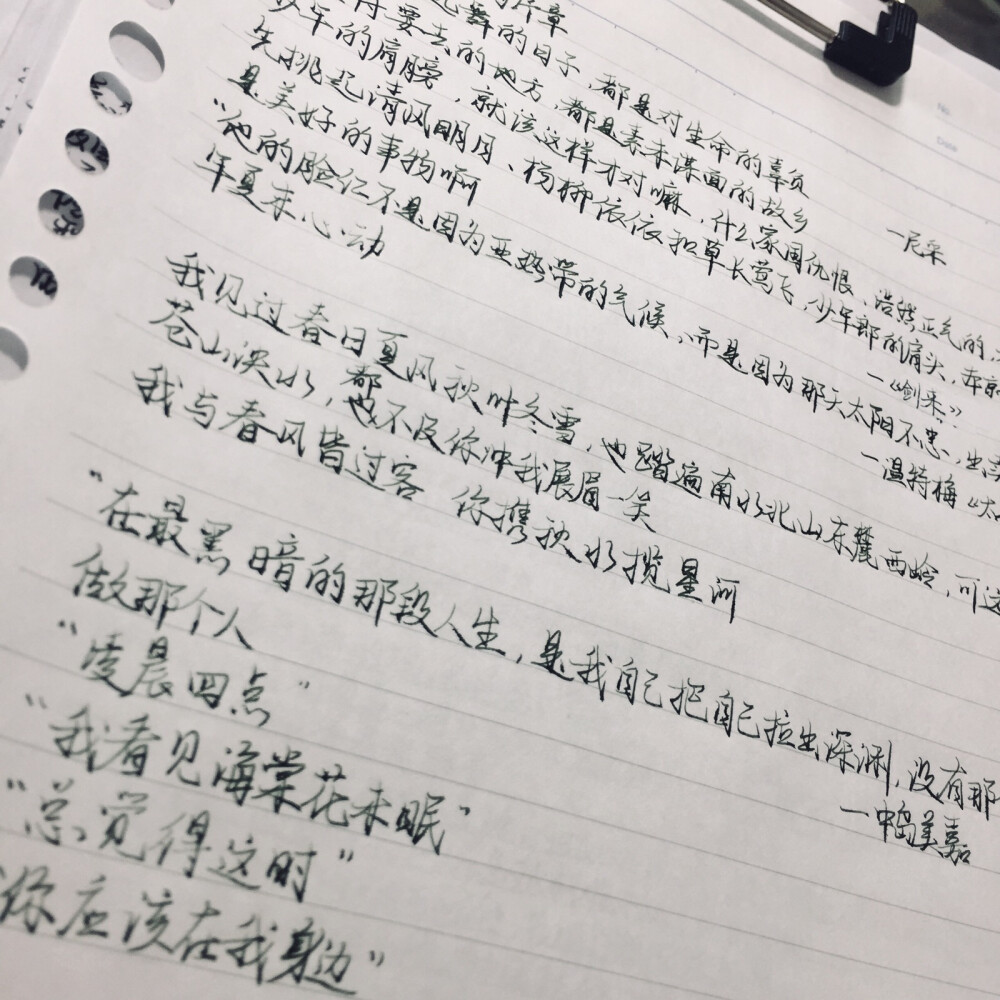 片章
起舞的日子，都是对生命的辜负
—尼采
要去的地方，都是素未谋面的故乡
少年的肩膀，就该这样才对嘛，什么家国仇恨、浩然正气的，
先挑起清风明月、杨柳依依和草长莺飞，少年郎的肩头，本
是美好的事物啊
—《剑来》
“他的脸红不是因为亚热带的气候、而是因为那天太阳不忠，出卖
年夏末心动
—温特梅《太
我见过春日夏风秋叶冬雪，也踏遍南水北山东麓西岭，可这
苍山泱水，都不及你冲我展眉一笑
我与春风皆过客 你携秋水揽星河
“在最黑暗的那段人生，是我自己把自己拉出深渊，没有那
做那个人
—中岛美嘉
“凌晨四点”
“我看见海棠花未眠”
“总觉得这时”
你应该在我身边”